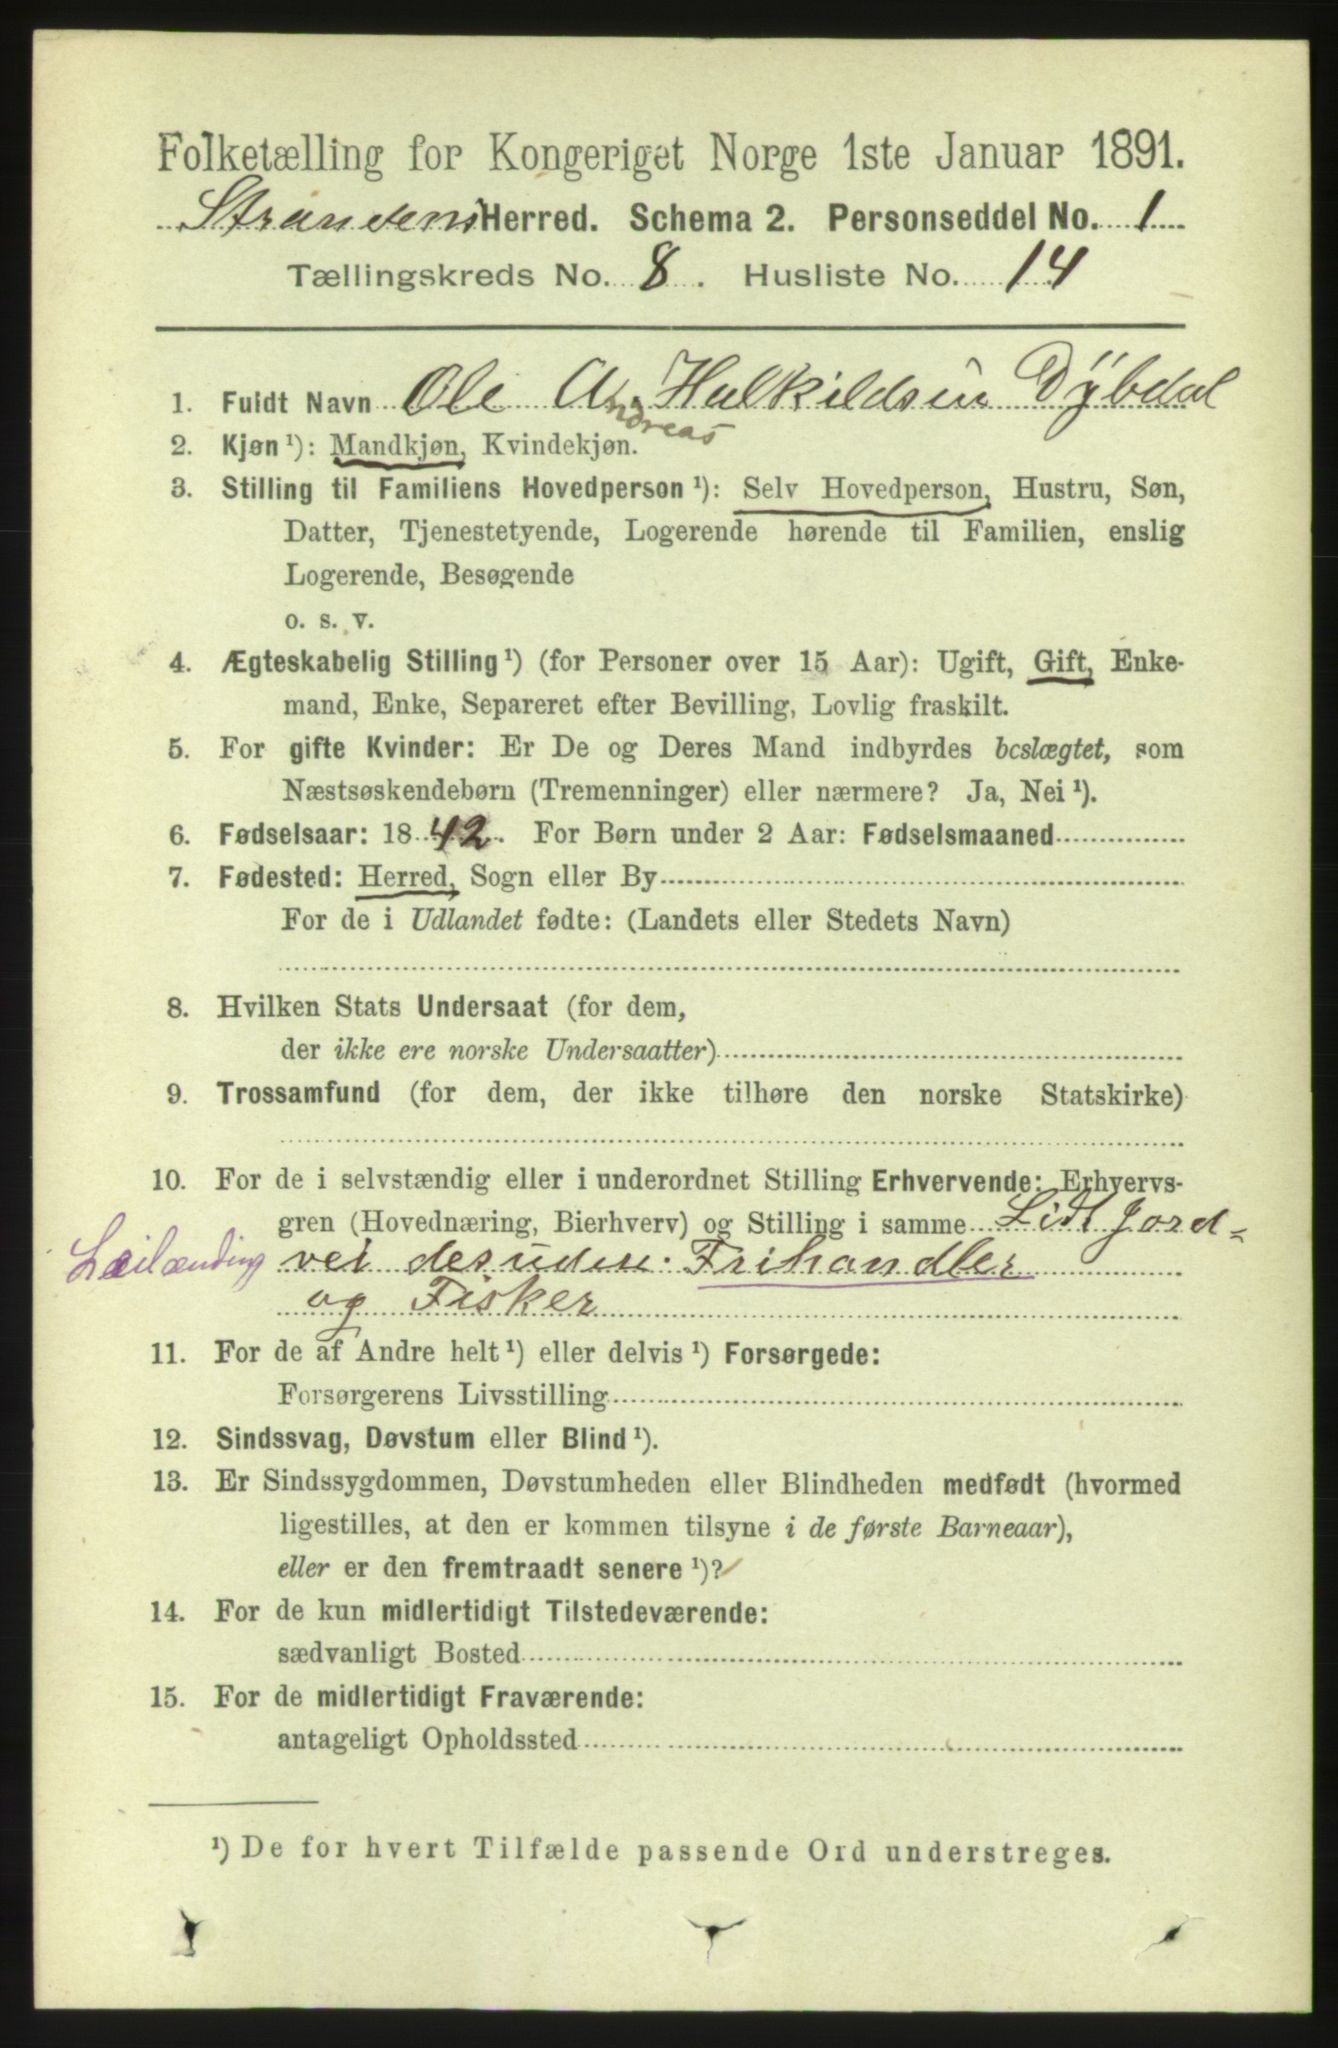 Folketælling for Kongeriget Norge 1ste Januar 1891.
Strandens Herred. Schema 2. Personseddel No. 1
Tællingskreds No. 8. Husliste No. 14
1. Fuldt Navn Ole A. Halkildsen Dÿbdal
Andreas
2. Kjøn ¹): Mandkjøn, Kvindekjøn.
3. Stilling til Familiens Hovedperson ¹): Selv Hovedperson, Hustru, Søn,
Datter, Tjenestetyende, Logerende hørende til Familien, enslig
Logerende, Besøgende
o. s. v.
4. Ægteskabelig Stilling ¹) (for Personer over 15 Aar): Ugift, Gift, Enke-
mand, Enke, Separeret efter Bevilling, Lovlig fraskilt.
5. For gifte Kvinder: Er De og Deres Mand indbyrdes beslægtet, som
Næstsøskendebørn (Tremenninger) eller nærmere? Ja, Nei ¹).
6. Fødselsaar: 1842. For Børn under 2 Aar: Fødselsmaaned
7. Fødested: Herred, Sogn eller By
For de i Udlandet fødte: (Landets eller Stedets Navn)
8. Hvilken Stats Undersaat (for dem,
der ikke ere norske Undersaatter)
9. Trossamfund (for dem, der ikke tilhøre den norske Statskirke)
10. For de i selvstændig eller i underordnet Stilling Erhvervende: Erhvervs-
gren (Hovednæring, Bierhverv) og Stilling i samme Lidt Jord-
Leilænding vei desuden. Frihandler
og Fisker
11. For de af Andre helt ¹) eller delvis ¹) Forsørgede:
Forsørgerens Livsstilling
12. Sindssvag, Døvstum eller Blind ¹).
13. Er Sindssygdommen, Døvstumheden eller Blindheden medfødt (hvormed
ligestilles, at den er kommen tilsyne i de første Barneaar),
eller er den fremtraadt senere ¹)?
14. For de kun midlertidigt Tilstedeværende:
sædvanligt Bosted
15. For de midlertidigt Fraværende:
antageligt Opholdssted
¹) De for hvert Tilfælde passende Ord understreges.